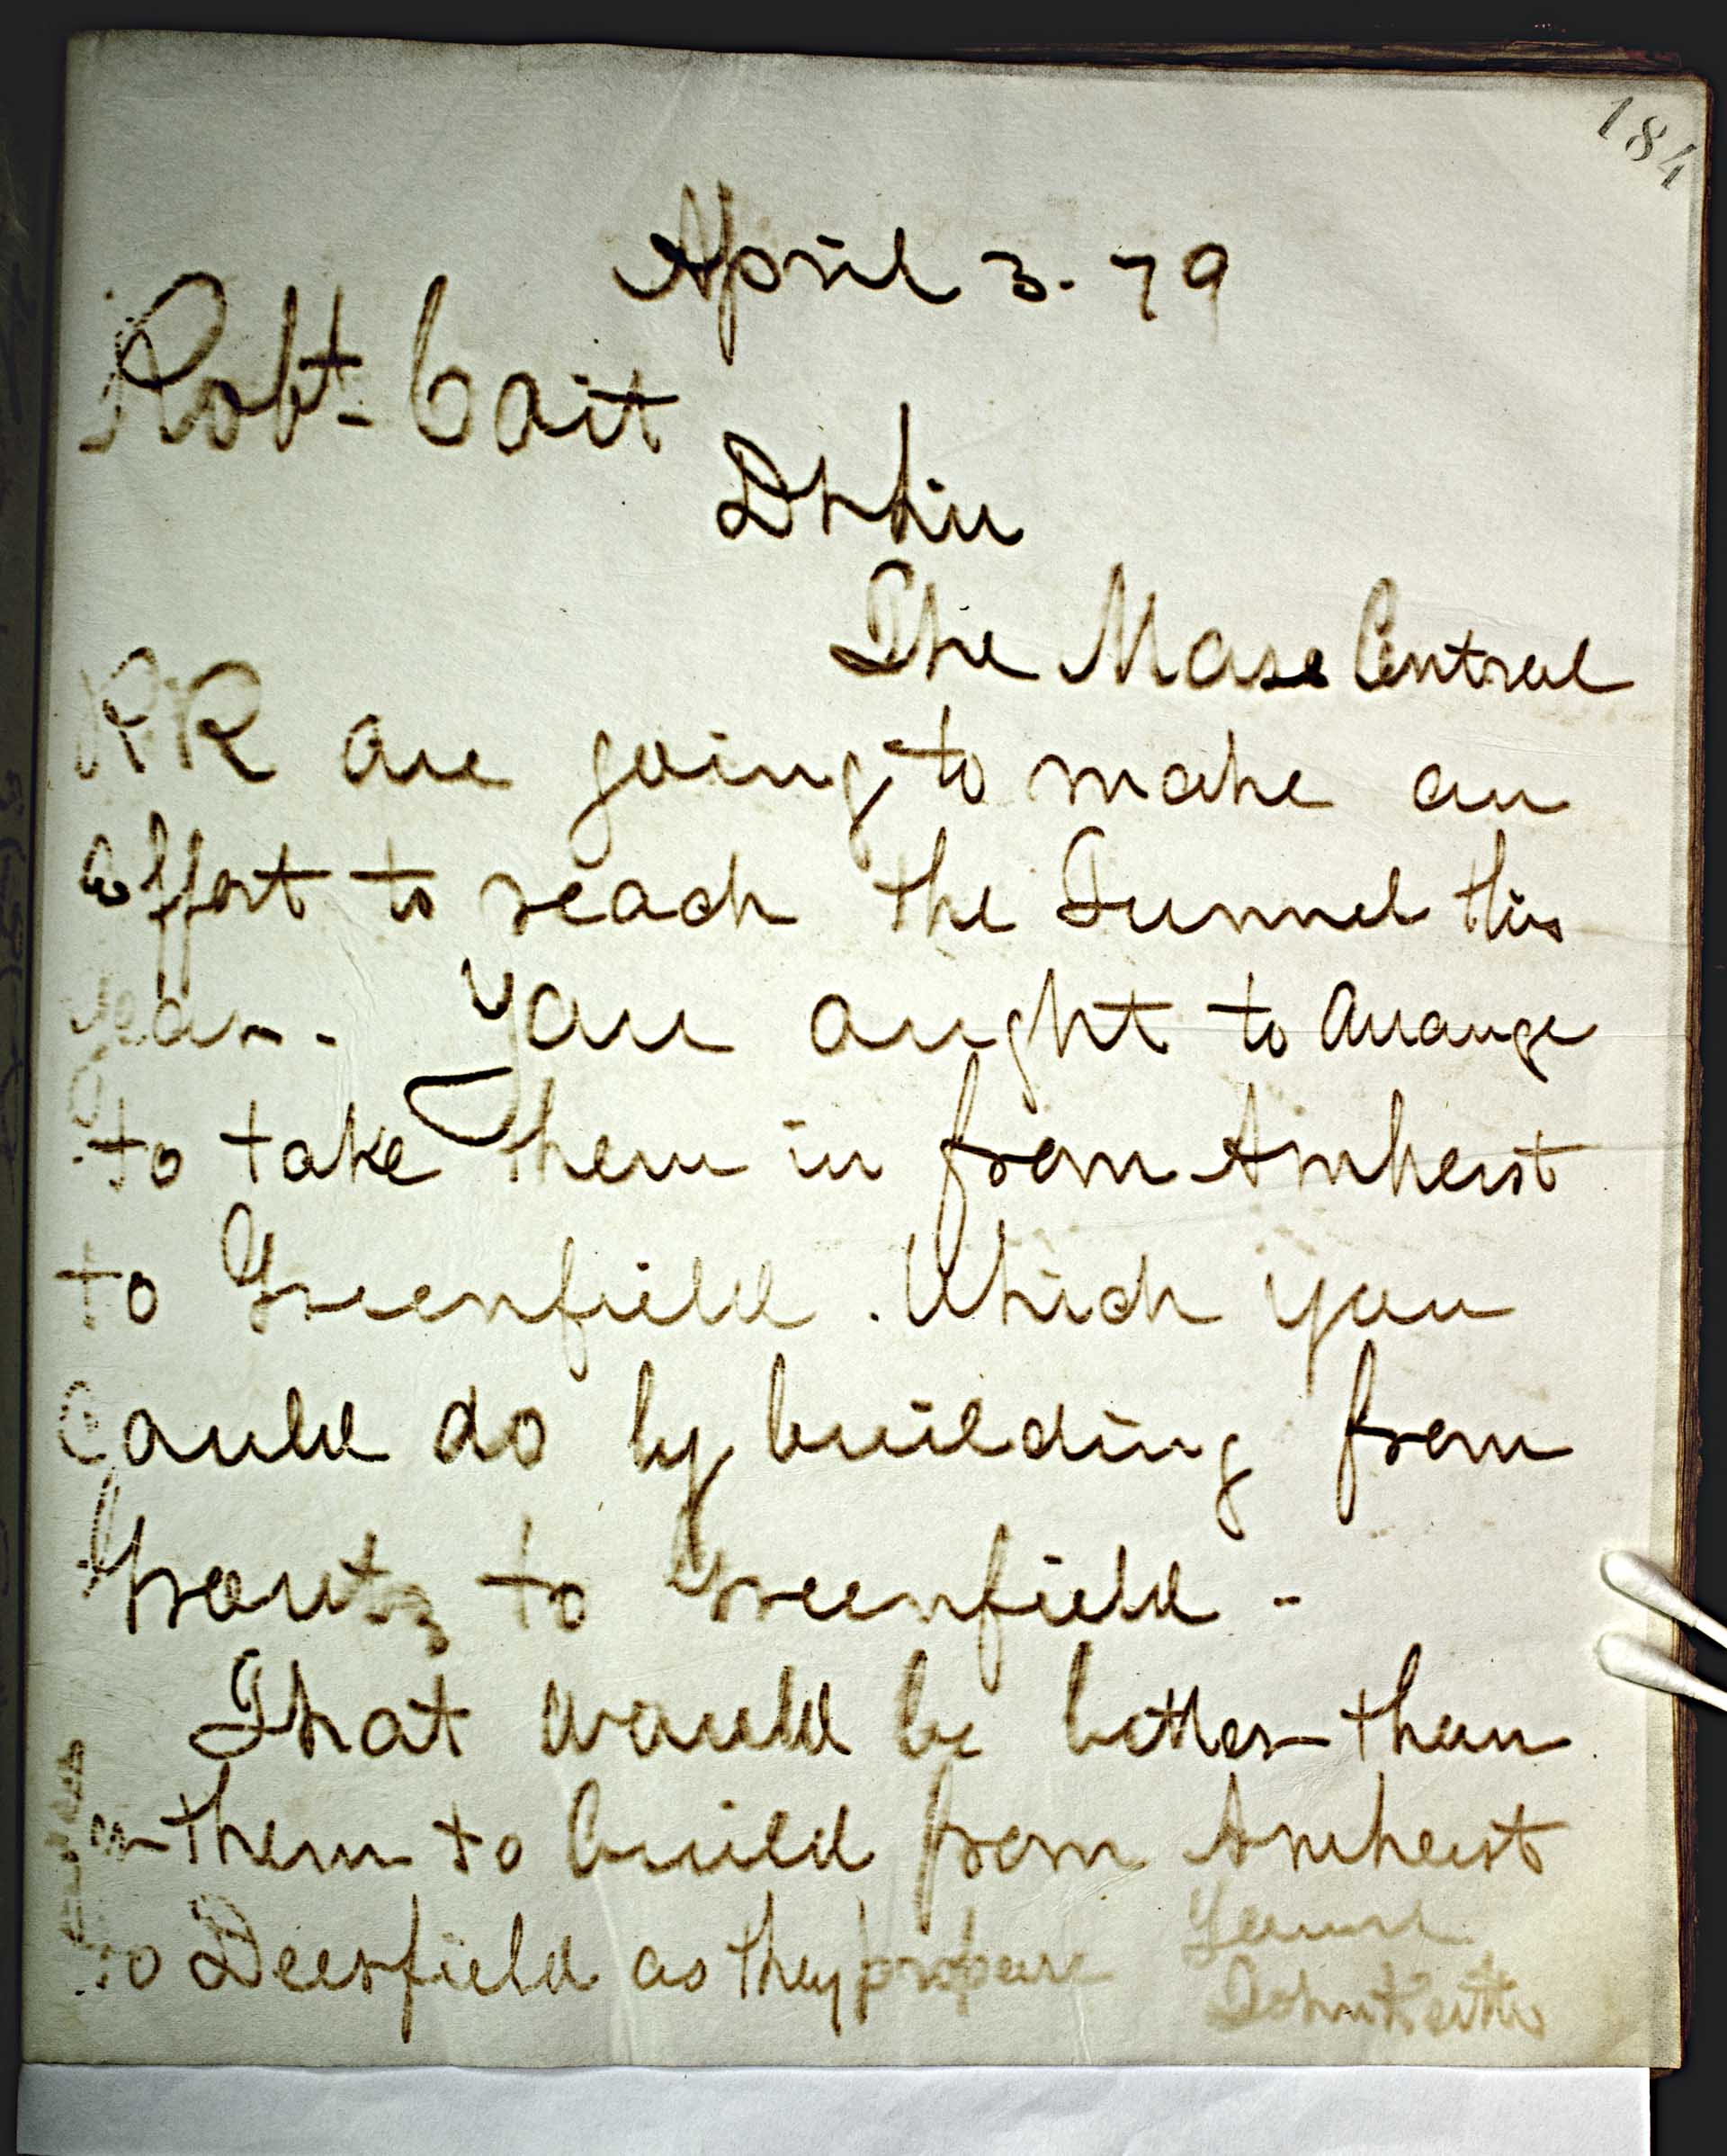 184
April 3. 79
Robt. Cait
Dr Sir
The Mass Central
RR are going to make an
effort to reach the Tunnel this
year. You ought to arrange
to take them in from Amherst
to Greenfield. Which you
could do by building from
Grouts to Greenfield -
That would be better than
them to build from Amherst
to Deerfield as they propose
Yours
John Keith